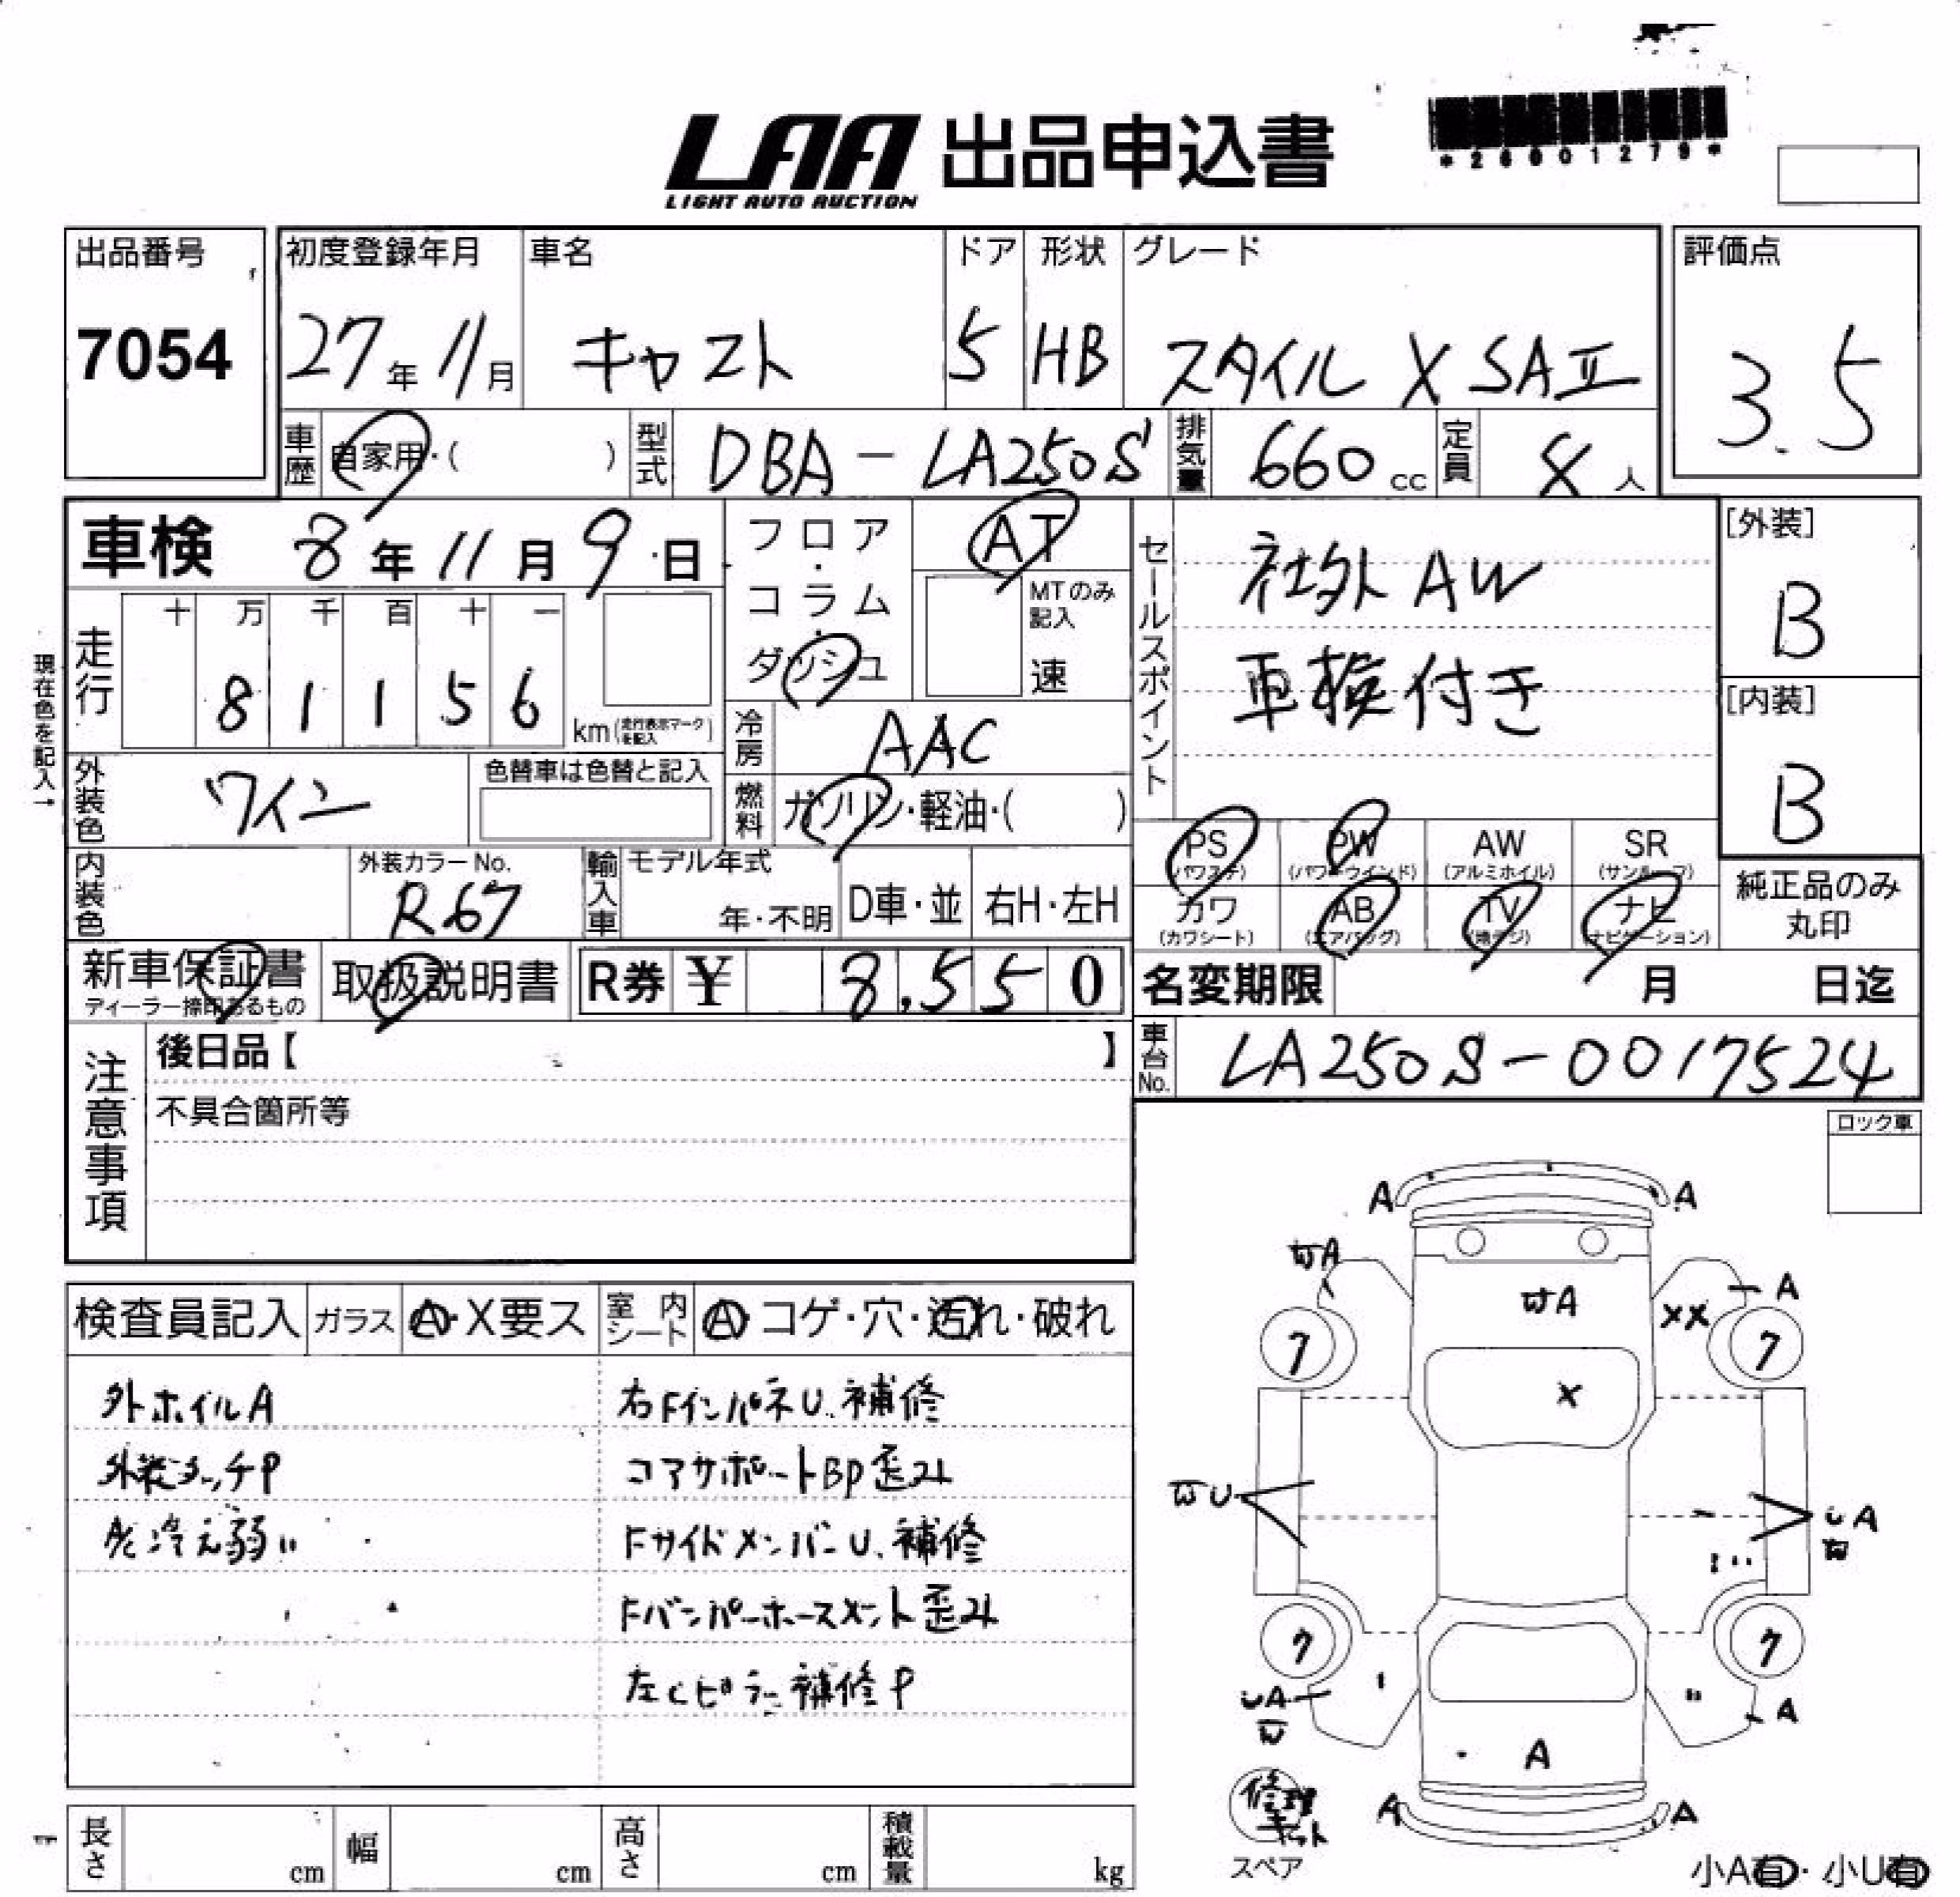 LAA 出品申込書
LIGHT AUTO AUCTION
*26001279*
出品番号
7054
初度登録年月
27年 11月
車名
キャスト
ドア
5
形状
HB
グレード
スタイル X SAⅡ
評価点
3.5
車歴
自家用・( )
型式
DBA-LA250S
排気量
660cc
定員
人
車検 8年 11月 9日
フロア・コラム・ダッシュ
AT
MTのみ記入
速
走行
十 万 千 百 十 一
8 1 1 5 6
km(走行表示マークを記入)
現在色を記入→
冷房
AAC
セールスポイント
社外AW
車検付き
[外装]
B
[内装]
B
外装色
ワイン
色替車は色替と記入
燃料
ガソリン・軽油・( )
内装色
外装カラーNo.
R67
輸入車
モデル年式
年・不明
D車・並
右H・左H
PS
(パワステ)
PW
(パワーウインド)
AW
(アルミホイル)
SR
(サンルーフ)
カワ
(カワシート)
AB
(エアバッグ)
TV
(地デジ)
ナビ
(ナビゲーション)
純正品のみ
丸印
新車保証書
ディーラー捺印あるもの
取扱説明書
R券 ¥ 8,550
名変期限 月 日迄
車台No.
LA250S-0017524
注意事項
後日品【 】
不具合箇所等
ロック車
検査員記入
ガラス
A・X要ス
室内シート
A・コゲ・穴・汚れ・破れ
外ホイルA
外装タッチP
A/C冷え弱い
右FインパネU、補修
コアサポートBP歪ス
FサイドメンバーU、補修
Fバンパーホースメント歪ス
左Cピラー補修P
A
A
WA
A
WA
XX
7
7
X
WU
UA
W
7
7
UA
W
A
A
A
A
修理キット
スペア
小A有・小U有
長さ
cm
幅
cm
高さ
cm
積載量
kg